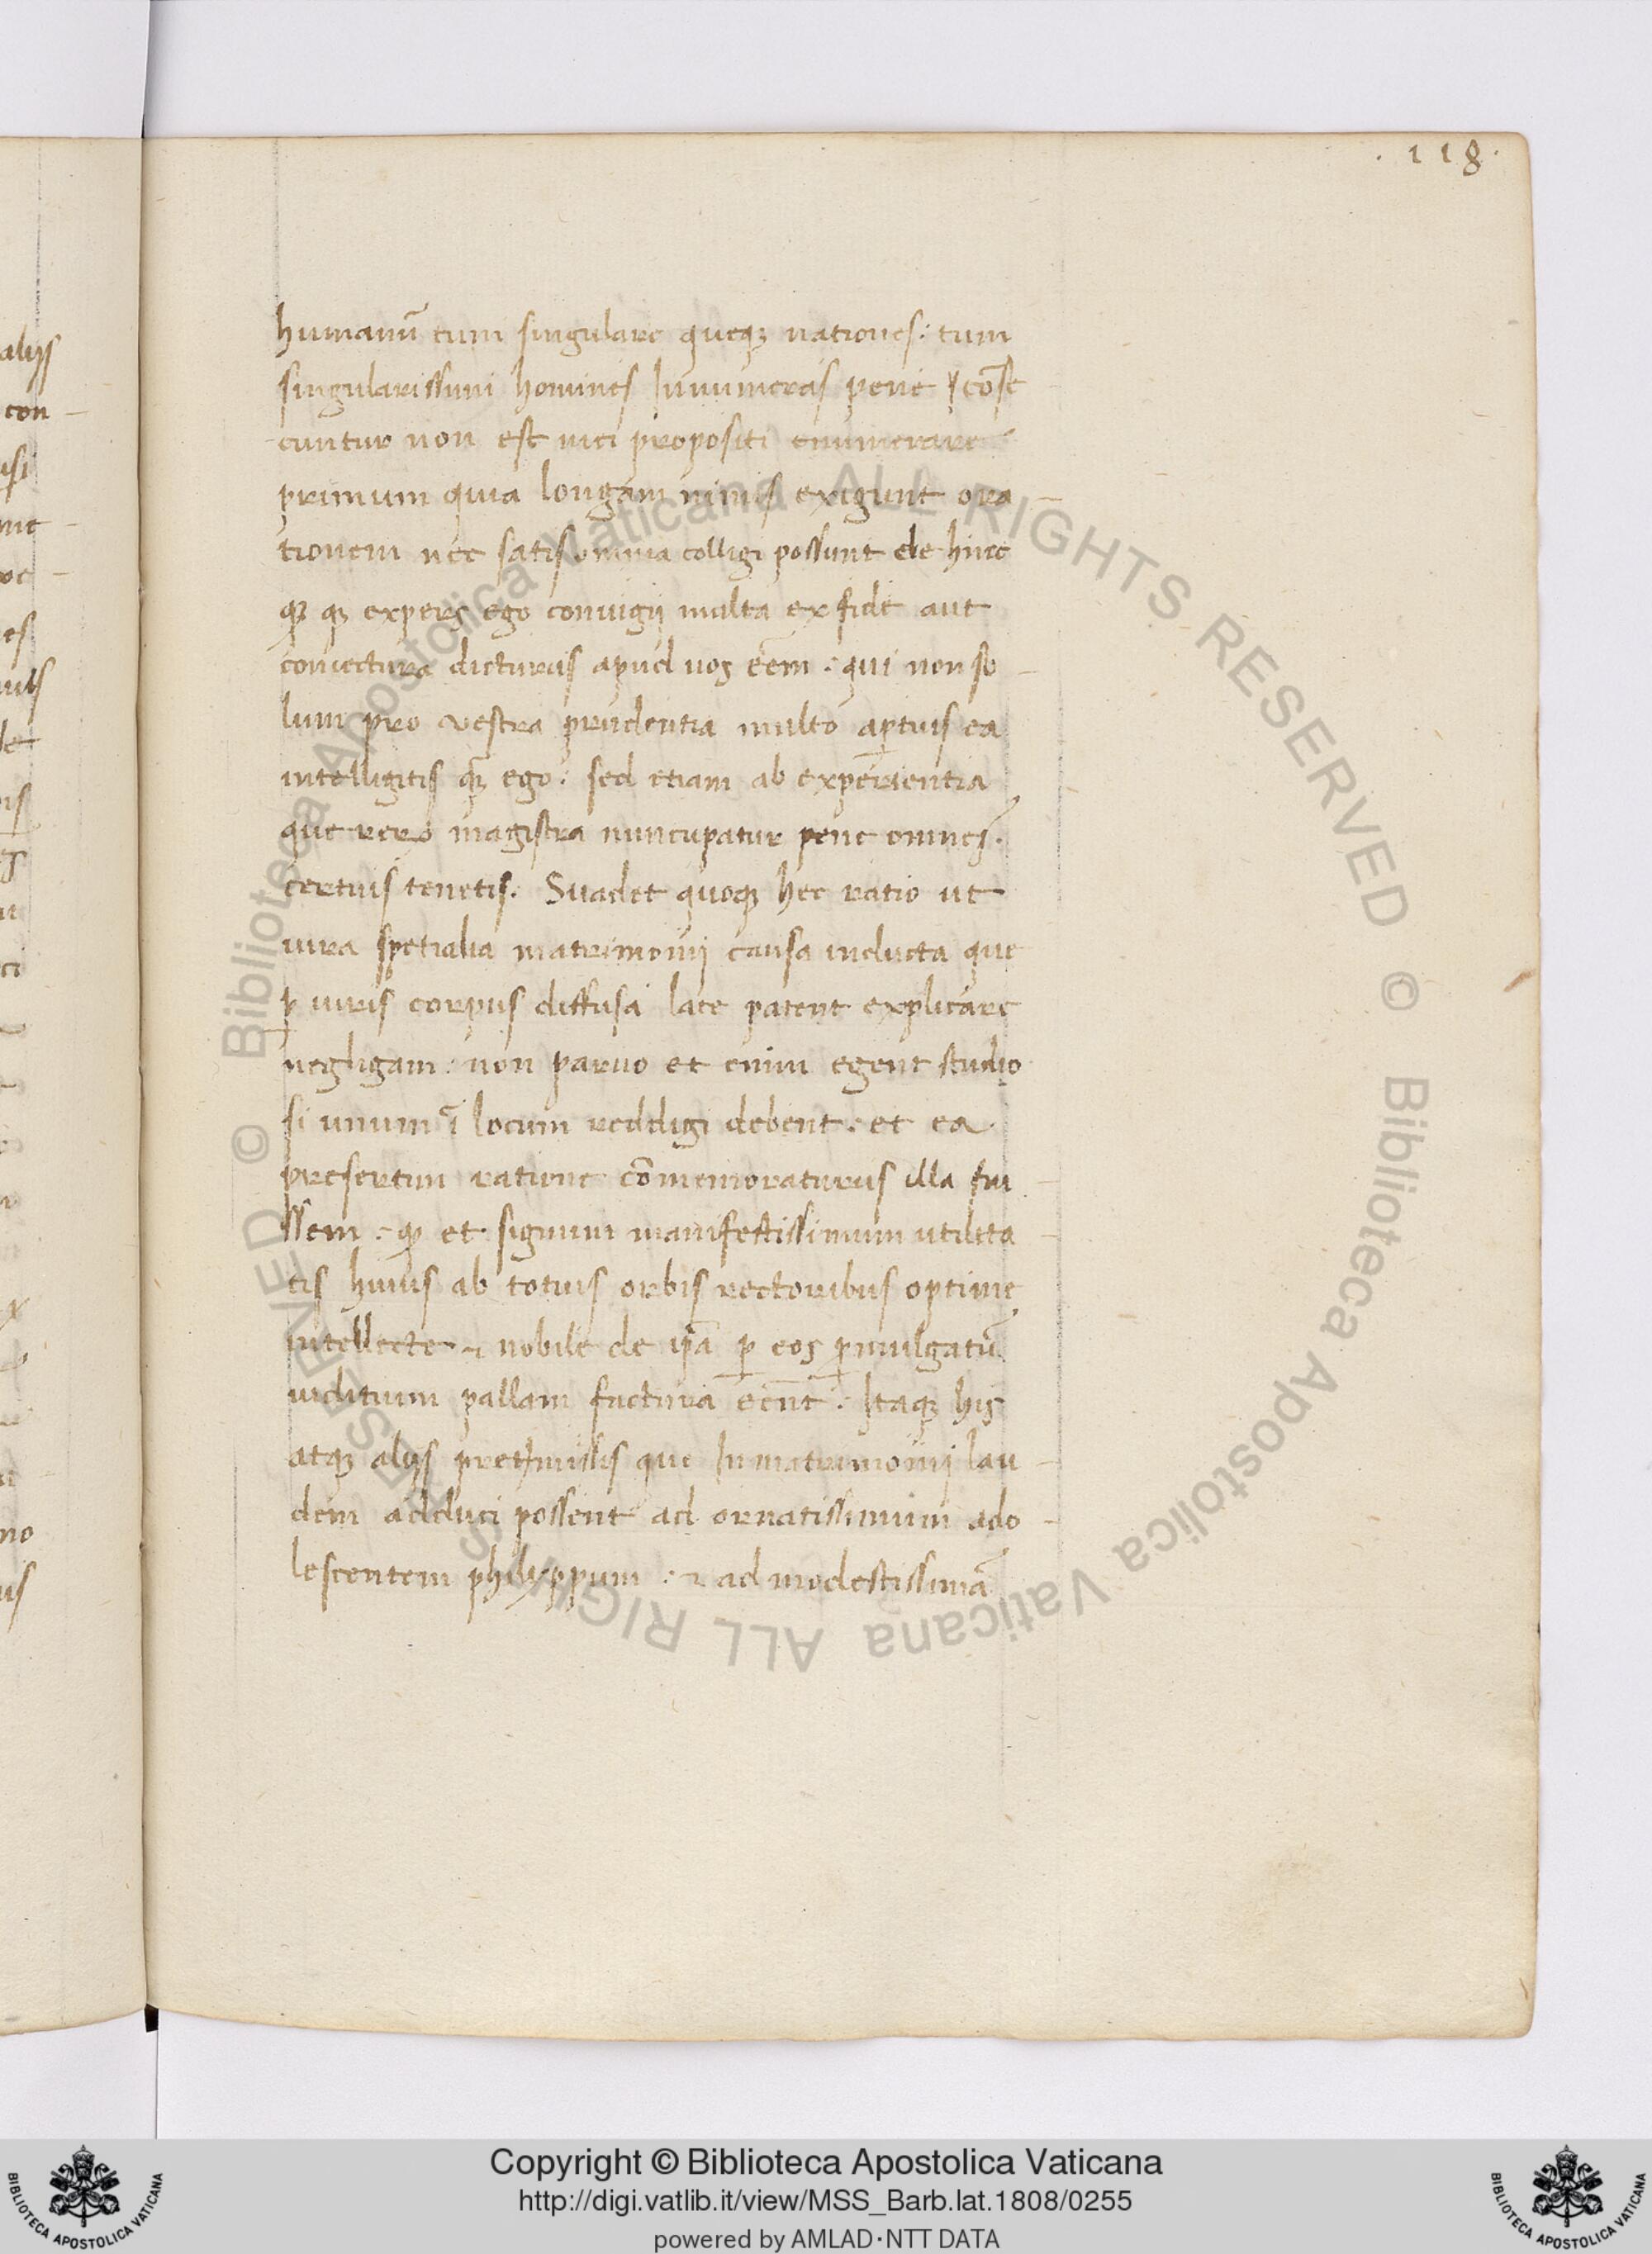 . 118 .
humanū tum singulare queqȝ nationes: tum
singularissimi homines Innumeras pene ꝓcōse
cuntur non est mei propositi enumerare
primum quia longam nimis exigunt ora
tionem nec satis omnia colligi possunt de hinc
qȝ expers ego coniugij multa ex fide aut
coniectura dicturus apud uos eēm . qui non so
lum pro vestra prudentia multo aptius ea
intelligitis qȝ ego: sed etiam ab experientia
que rerū magistra nuncupatur pene omneȝ.
certius tenetis. Suadet quoqȝ hec ratio ut
iura spetialia matrimonij causa inducta que
ꝑ iuris corpus diffusa late patent explicare
negligam: non paruo et enim egent studio
si unum ī locum reddigi debent. et ea
presertim ratione cōmemoraturus illa fui
ssem . qȝ et signum manifestissimum utilita
tis huius ab totius orbis rectoribus optime
intellecte & nobile de ipā ꝑ eos ꝓmulgatū
iuditium pallam factura eēnt: Itaqȝ his
atqȝ alijs pretermissis que In matrimonij lau
dem adduci possent ad ornatissimum ado
lescentem philyppum: & ad modestissimā
alijs
con
no
Copyright © Biblioteca Apostolica Vaticana
http://digi.vatlib.it/view/MSS_Barb.lat.1808/0255
powered by AMLAD·NTT DATA
BIBLIOTECA APOSTOLICA VATICANA
BIBLIOTECA APOSTOLICA VATICANA
© Biblioteca Apostolica Vaticana ALL RIGHTS RESERVED © Biblioteca Apostolica Vaticana ALL RIGHTS RESERVED